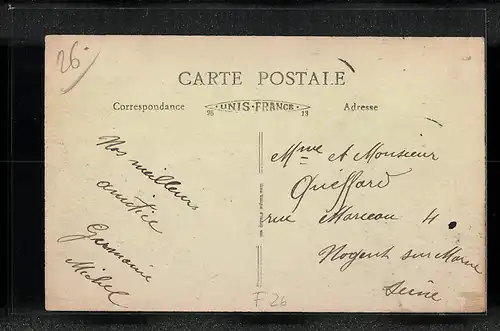 26.
CARTE POSTALE
Correspondance
UNIS-FRANCE
26 13
Adresse
Nos meilleurs
amitié
Germaine
Michel
Mme et Monsieur
Quéffard
rue Marceau 4
Nogent sur Marne
Seine
F 26